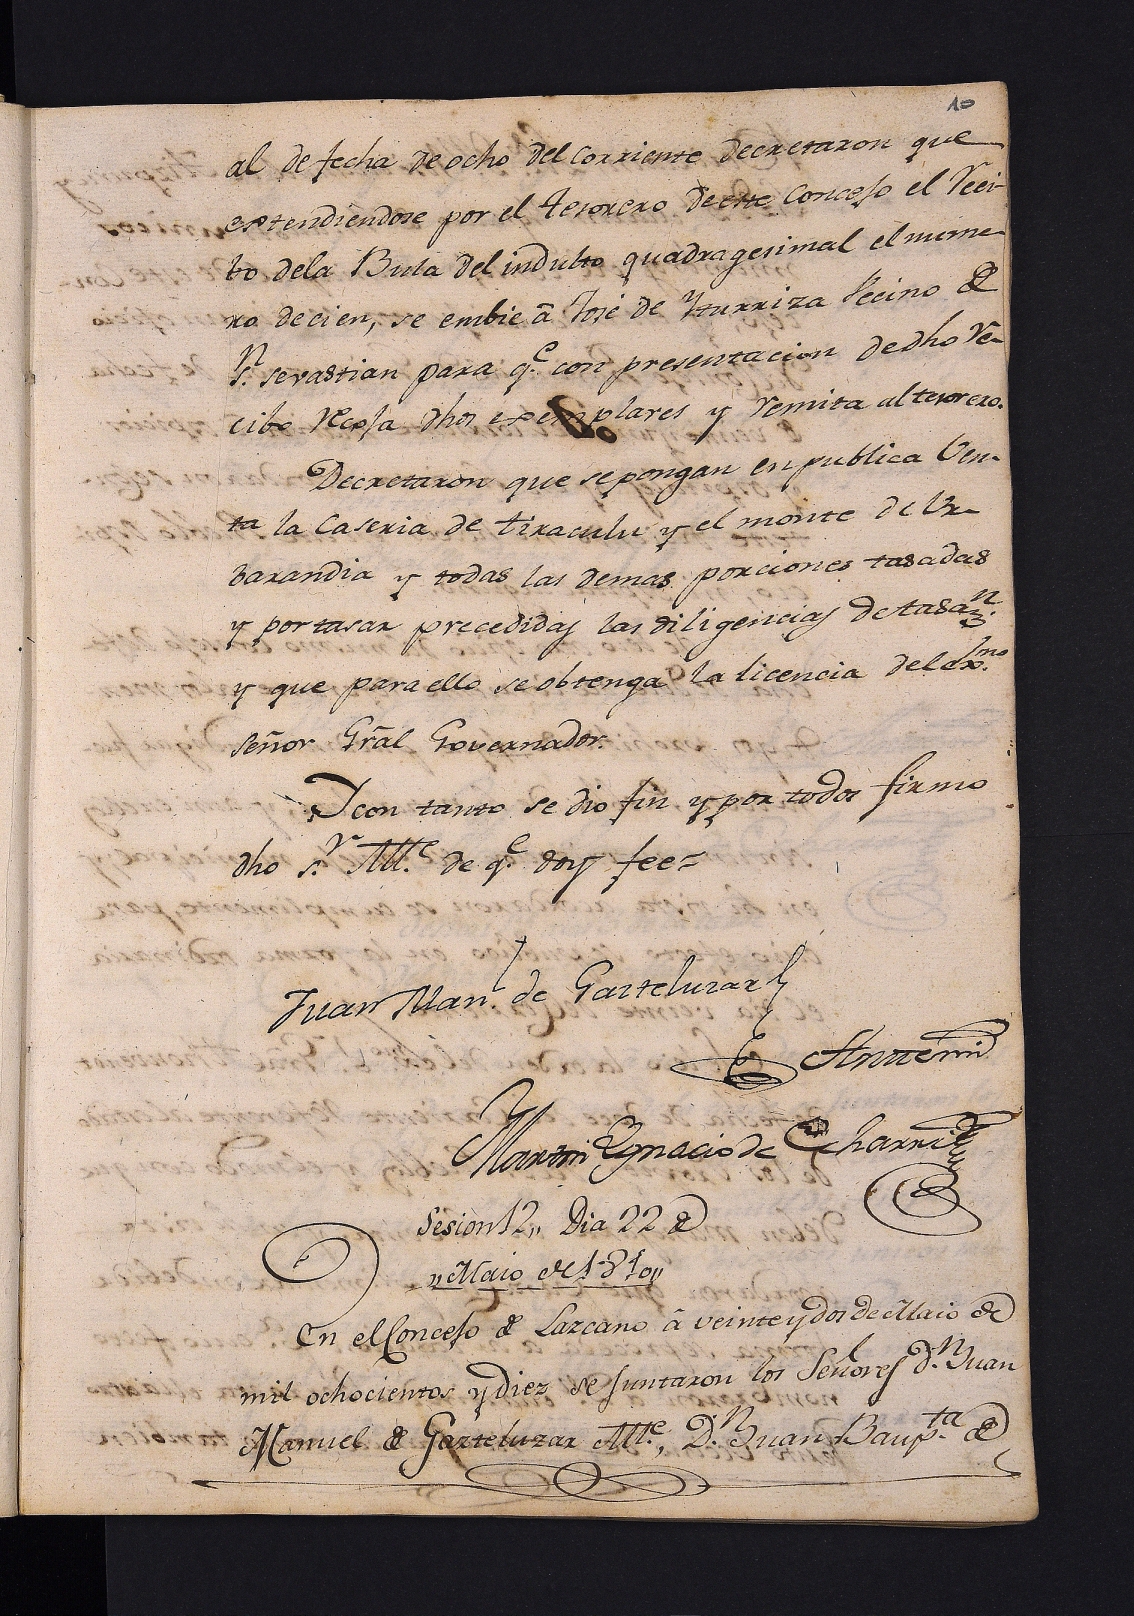 10
al de fecha de ocho del corriente decretaron que
extendiendose por el tesorero de este Concejo el Reci-
bo dela Bula del indulto quadragesimal el nume-
ro de cien, se embie â José de Yturriza Vecino de
Sn. Sevastian para qe. con presentacion de dho Re-
cibo recoja dhos exemplares y remita al tesorero.
Decretaron que se pongan en publica Ven-
ta la Caseria de tiraculu y el monte de Ur-
barandia y todas las demas porciones tasadas
y por tasar precedidas las diligencias de tasan.
y que para ello se obtenga la licencia del exmo.
señor Grãl Governador.
Y con tanto se dio fin y por todos firmo
dho sr. Alle. de qe. doy fee=
Juan Manl. de Garteluzar
Antemi
Martin Ygnacio de Echarri
Sesion 12,, Dia 22 de
,,Maio de 1810,,
En el Concejo de Lazcano â veinte y dos de Maio de
mil ochocientos y diez se juntaron los Señores Dn. Juan
Manuel de Garteluzar Alle., Dn. Juan Baupta. de